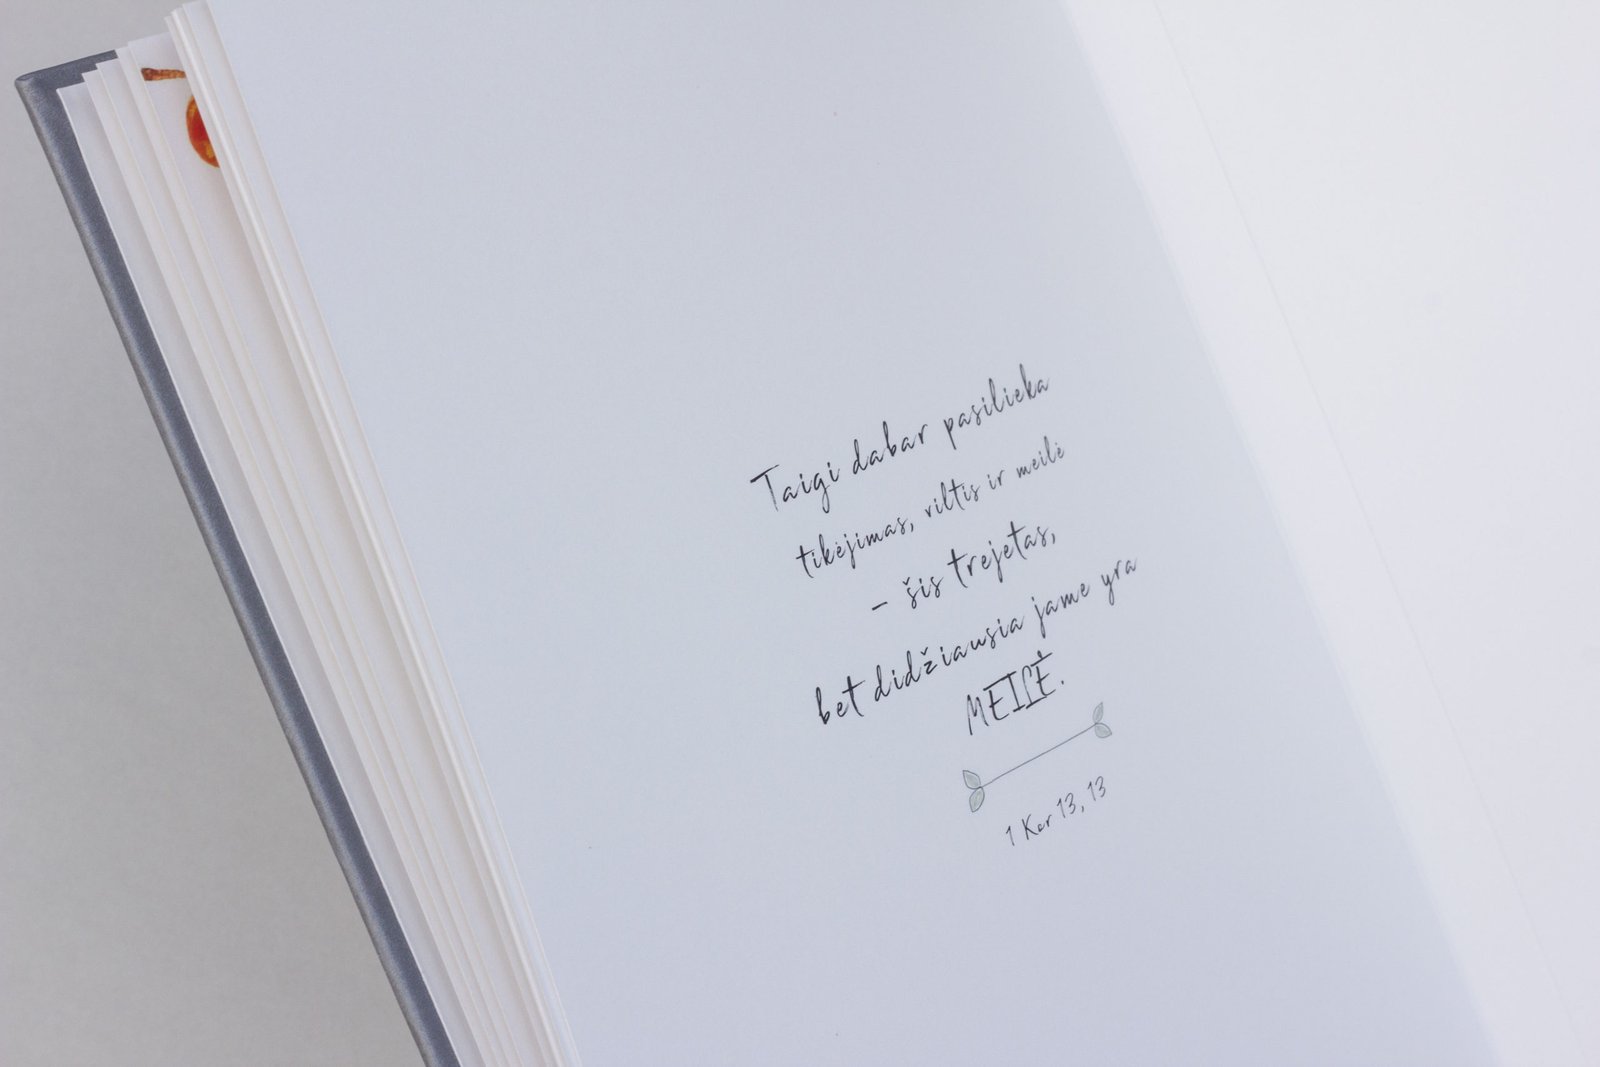 Taigi dabar pasilieka
tikėjimas, viltis ir meilė
- šis trejetas,
bet didžiausia jame yra
MEILĖ.
1 Kor 13, 13